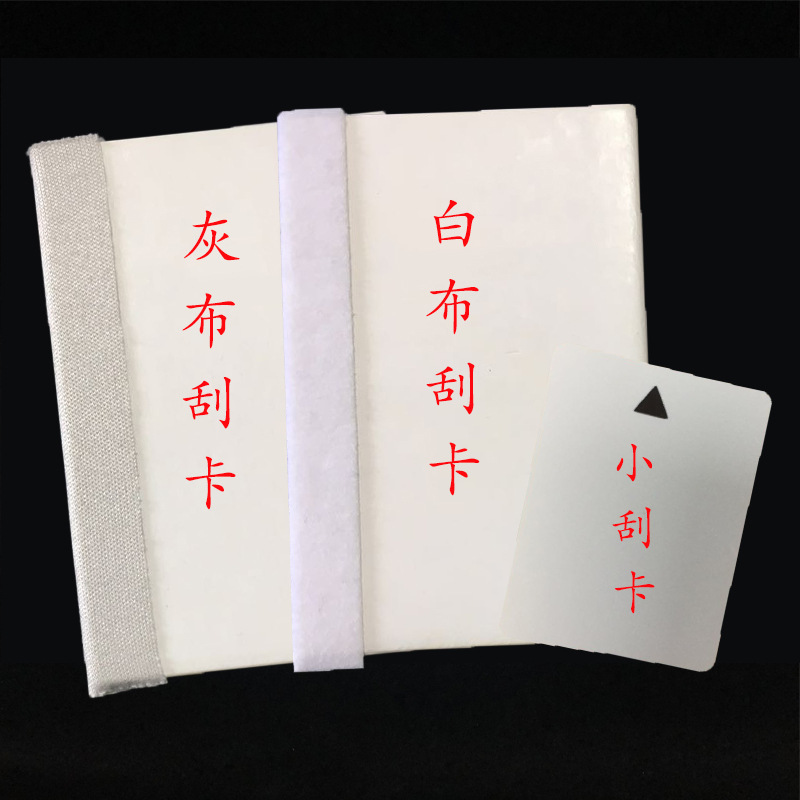 灰布刮卡
白布刮卡
小刮卡